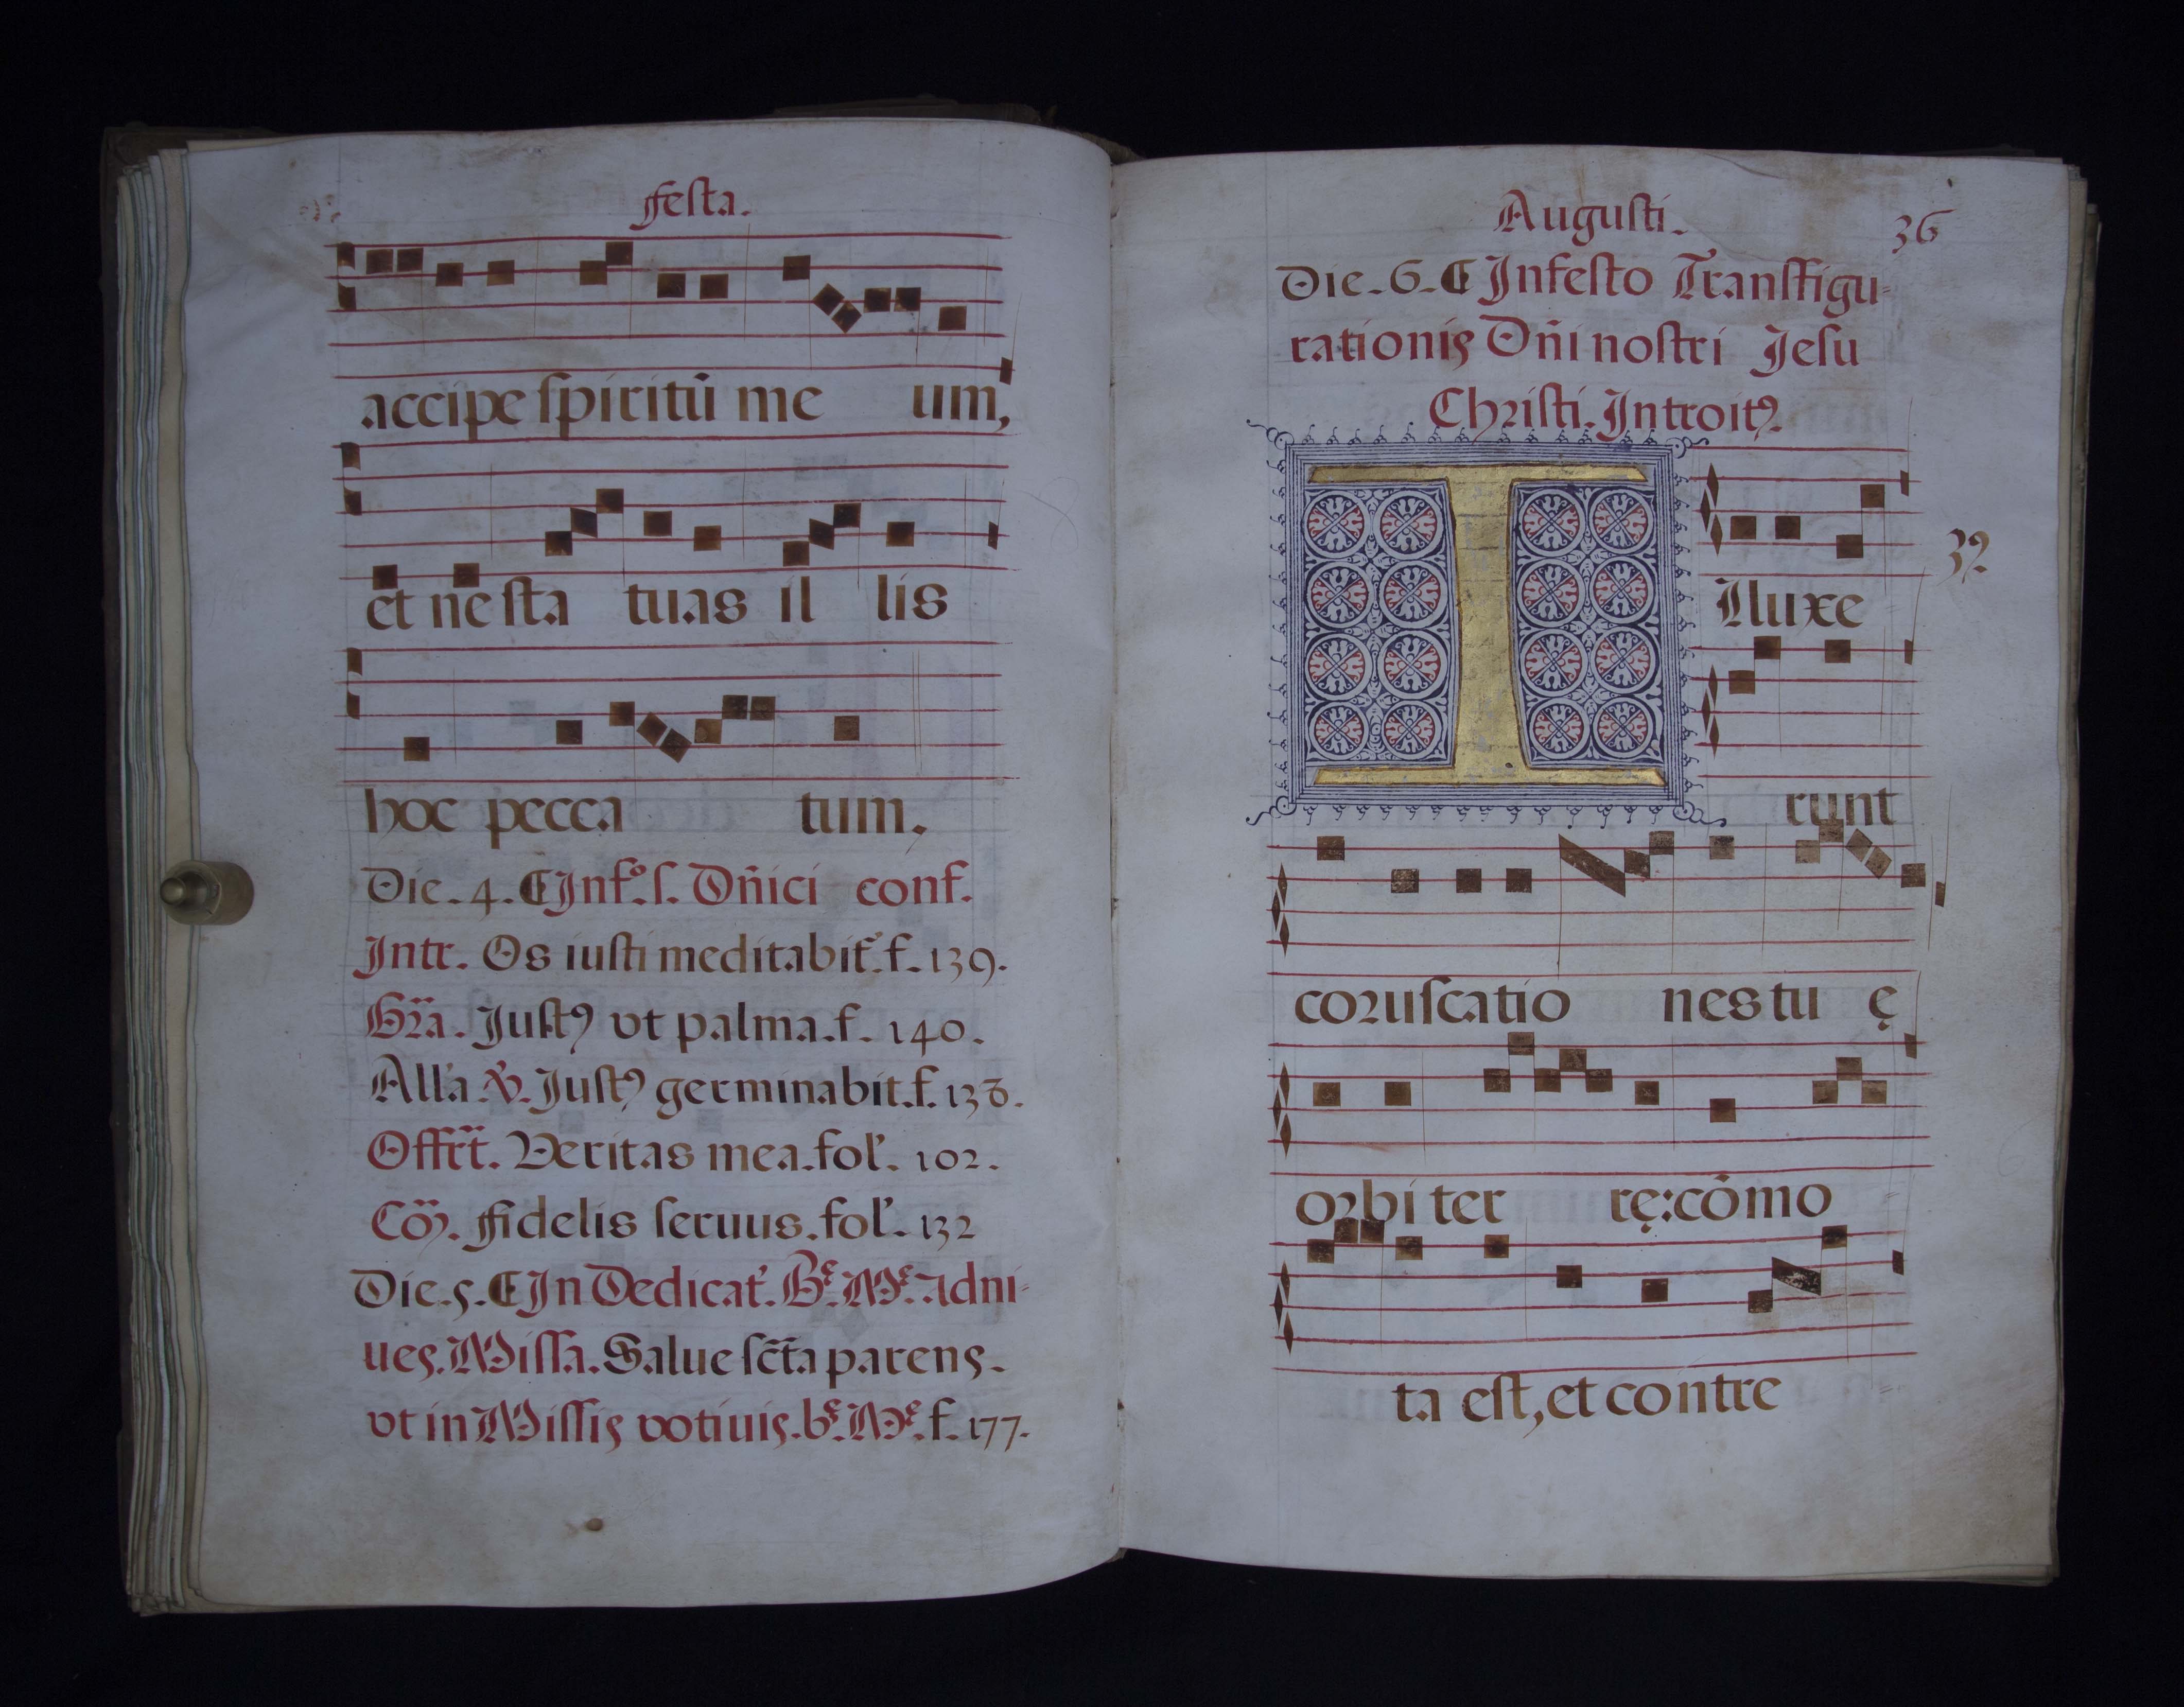 festa.
accipe spiritū me um,
et ne sta tuas il lis
hoc pecca tum,
Die. 4. ¶ Inf.º s. Dñici conf.
Intr. Os iusti meditabit̃. f. 139.
Gr̃a. Justꝰ vt palma. f. 140.
All'a ℣. Justꝰ germinabit. f. 138.
Offrt̃. Veritas mea. fol'. 102.
Cõ. fidelis seruus. fol'. 132
Die. 5. ¶ In Dedicat'. Bᵉ. Mᵉ. adni-
ues. Missa. Salue sc̃ta parens.
vt in Missis votiuis. bᵉ. Mᵉ. f. 177.
Augusti.
36
Die. 6. ¶ Infesto Transfigu-
rationis Dñi nostri Jesu
Christi. Introitꝰ.
32
I Lluxe
runt
coruscatio nes tu ę
orbi ter rę: cōmo
ta est, et contre